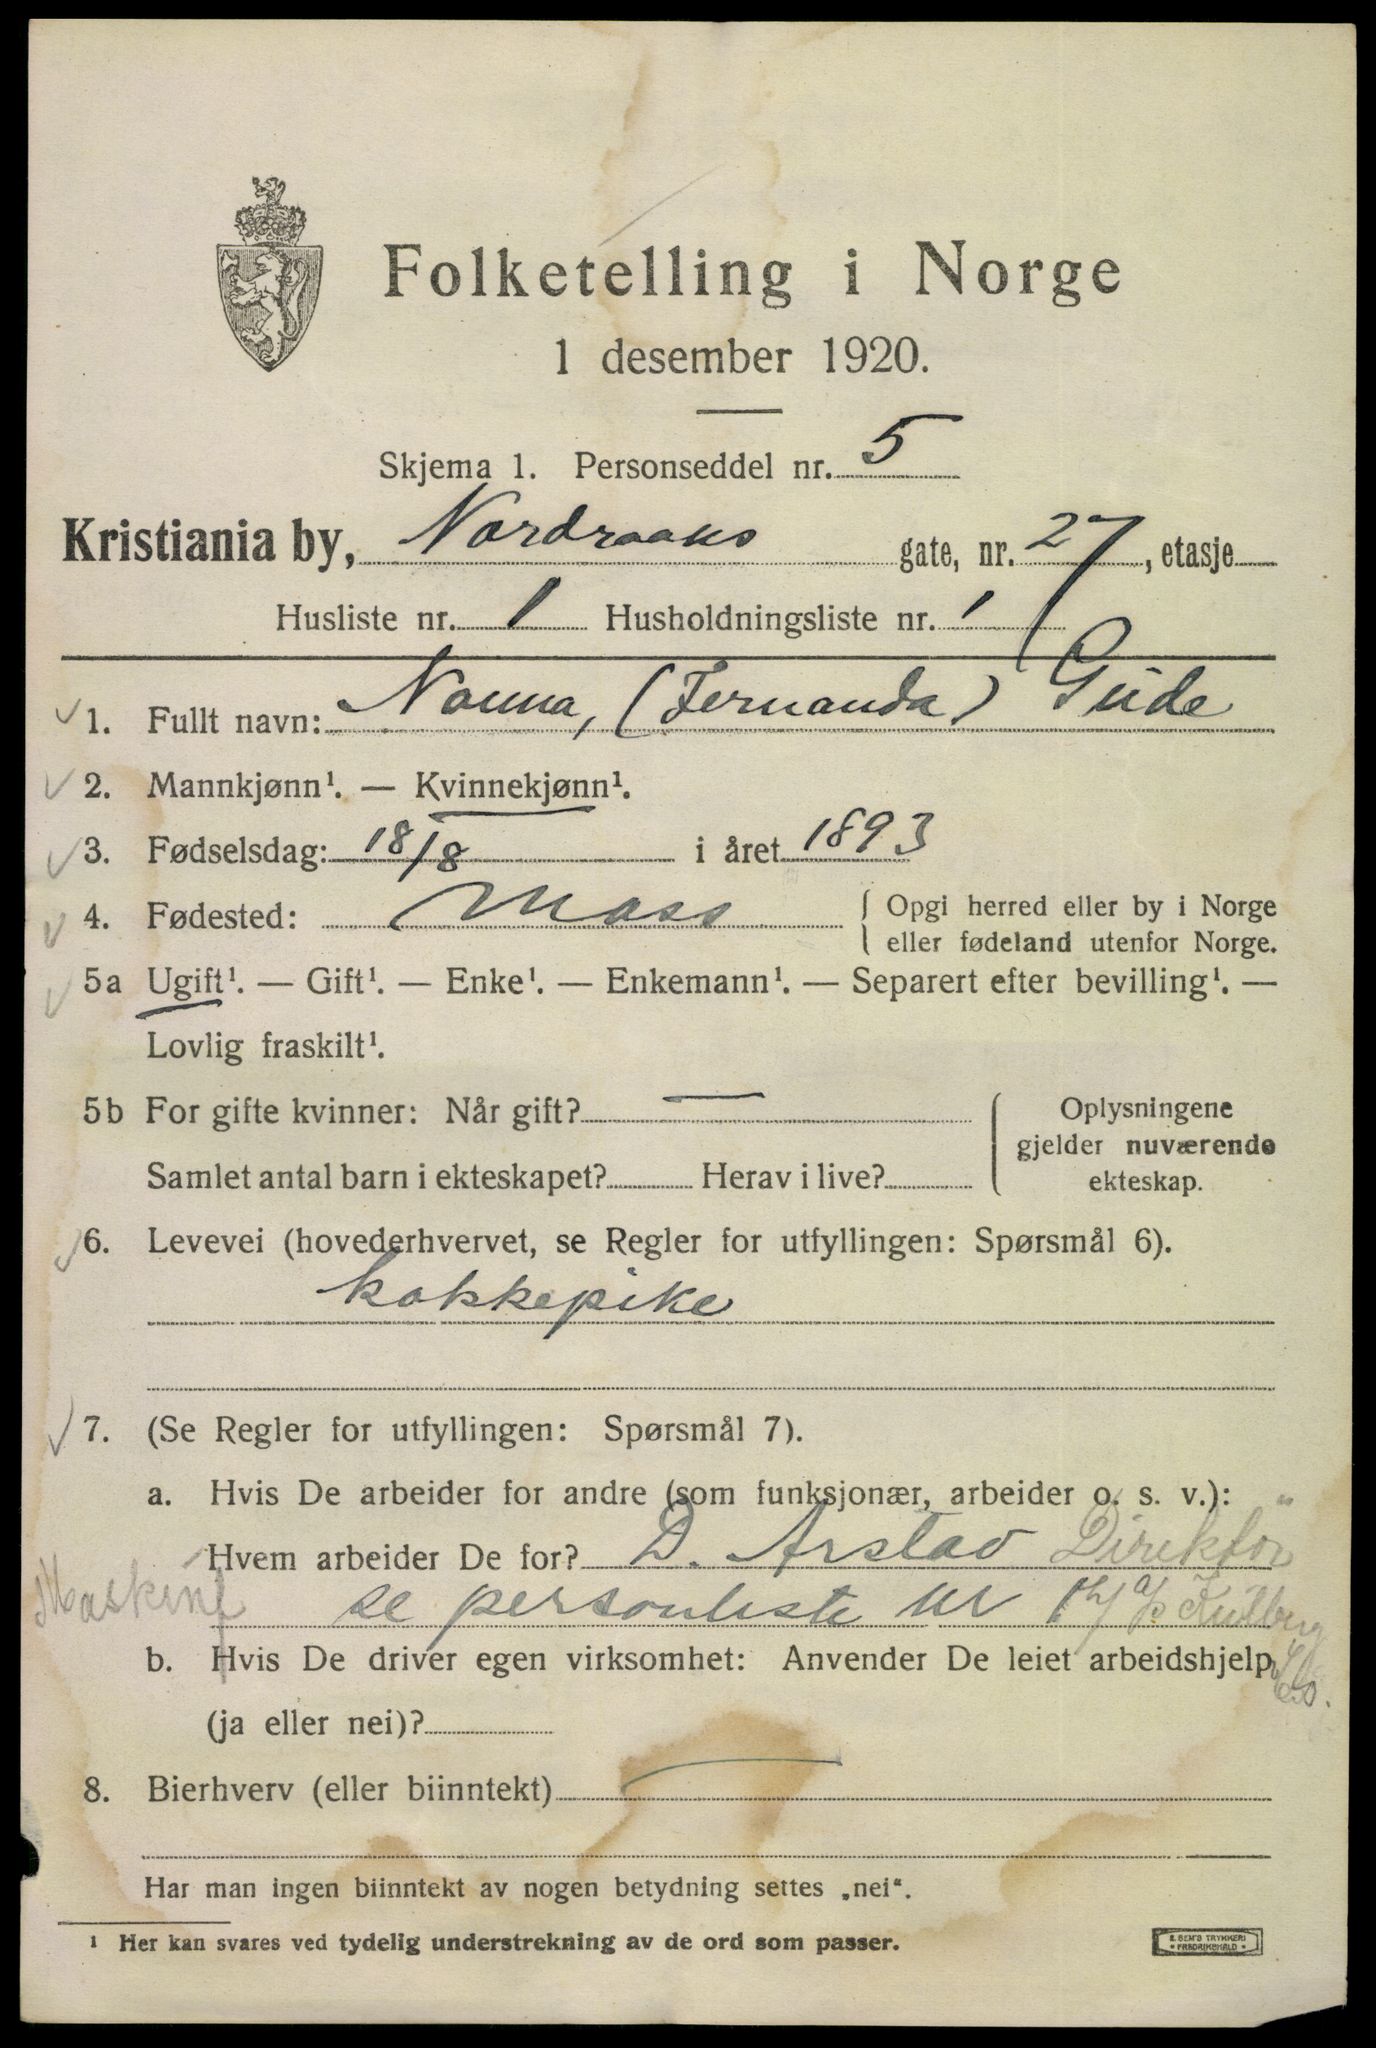 Folketelling i Norge
1 desember 1920.
Skjema 1. Personseddel nr. 5
Kristiania by, Nordraaks gate, nr. 27, etasje
Husliste nr. 1 Husholdningsliste nr. 1
1. Fullt navn: Nanna, (Fernanda) Gude
2. Mannkjønn¹. — Kvinnekjønn¹.
3. Fødselsdag: 18/8 i året 1893
4. Fødested: Moss { Opgi herred eller by i Norge
eller fødeland utenfor Norge.
5a Ugift¹. — Gift¹. — Enke¹. — Enkemann¹. — Separert efter bevilling¹. —
Lovlig fraskilt¹.
5b For gifte kvinner: Når gift? — Oplysningene
gjelder nuværende
Samlet antal barn i ekteskapet? Herav i live? ekteskap.
6. Levevei (hovederhvervet, se Regler for utfyllingen: Spørsmål 6).
kokkepike
7. (Se Regler for utfyllingen: Spørsmål 7).
a. Hvis De arbeider for andre (som funksjonær, arbeider o. s. v.):
Hvem arbeider De for? D. Arstad Direktör
Maskinf se personliste nr 1
b. Hvis De driver egen virksomhet: Anvender De leiet arbeidshjelp
(ja eller nei)?
8. Bierhverv (eller biinntekt) —
Har man ingen biinntekt av nogen betydning settes „nei".
¹ Her kan svares ved tydelig understrekning av de ord som passer.
E. SEM'S TRYKKERI
* FREDRIKSHALD *